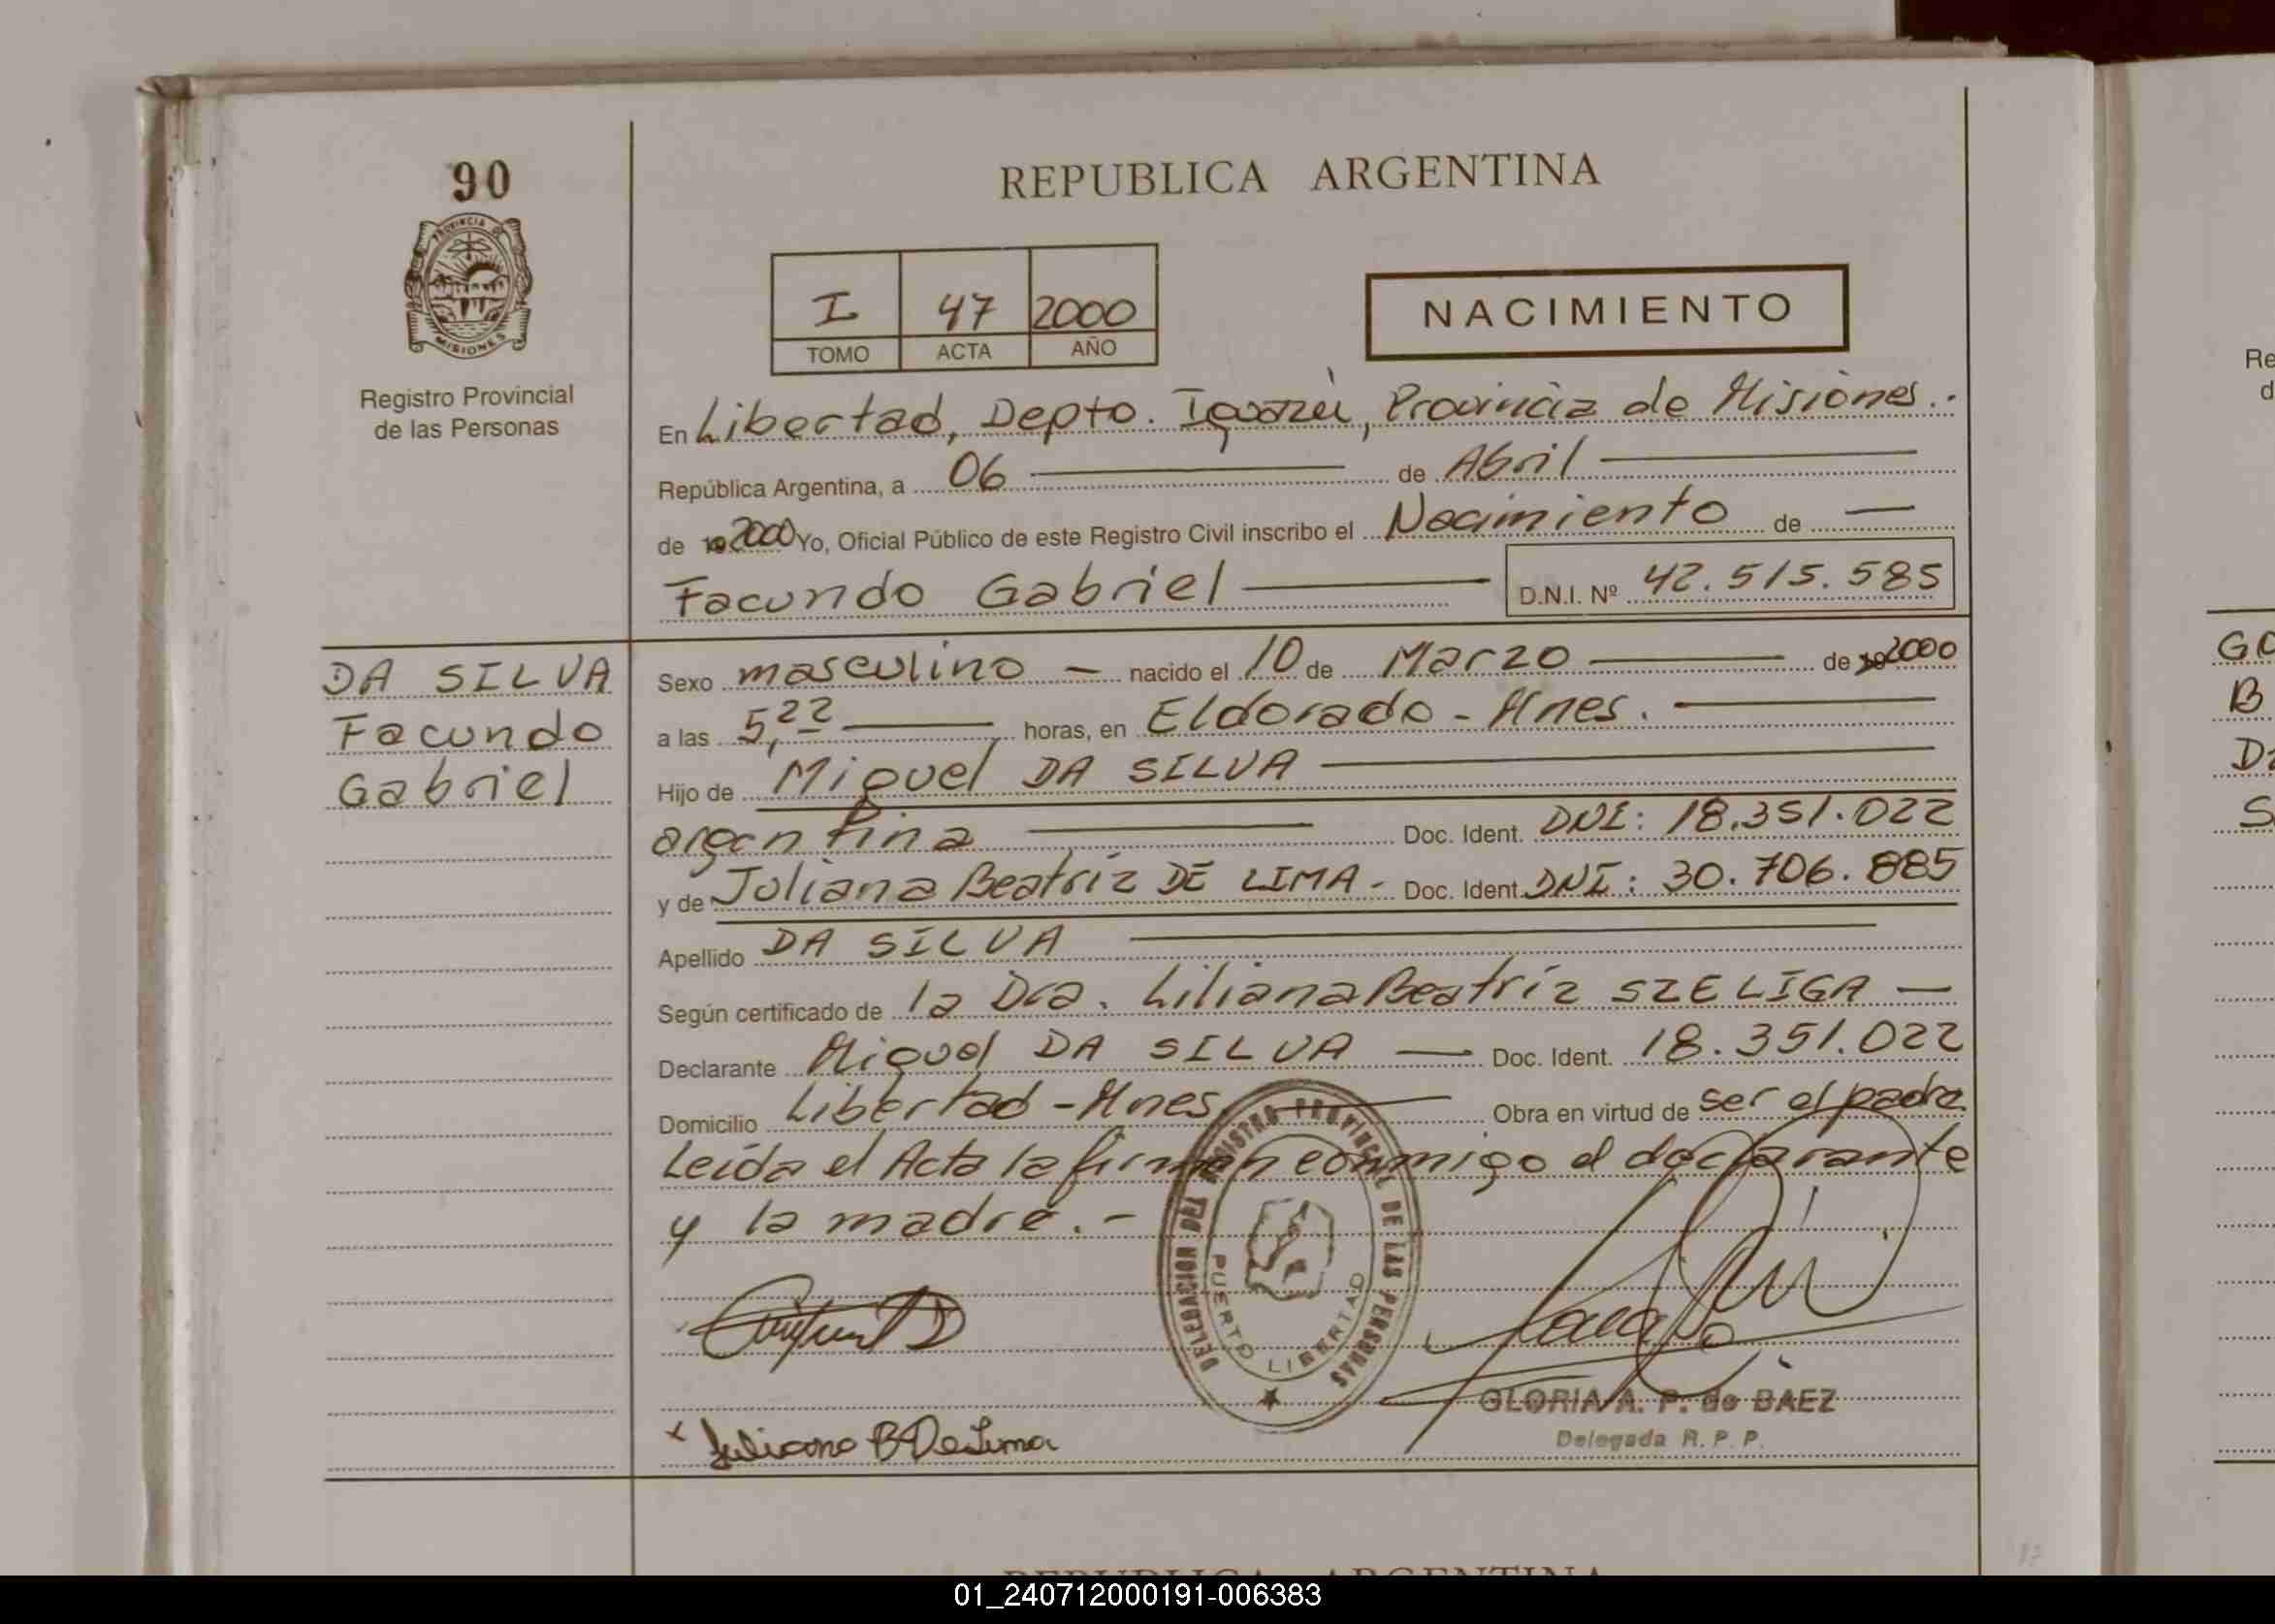 90
PROVINCIA DE MISIONES
Registro Provincial
de las Personas
REPUBLICA ARGENTINA
I 47 2000
TOMO ACTA AÑO
NACIMIENTO
En Libertad, Depto. Iguazú, Provincia de Misiones.-
República Argentina, a 06 de Abril
de 2000 Yo, Oficial Público de este Registro Civil inscribo el Nacimiento de —
Facundo Gabriel D.N.I. Nº 42.515.585
DA SILVA
Facundo
Gabriel
Sexo masculino — nacido el 10 de Marzo de 2000
a las 5,22 horas, en Eldorado - Mnes.
Hijo de Miguel DA SILVA
argentina Doc. Ident. DNI: 18.351.022
y de Juliana Beatriz DE LIMA - Doc. Ident. DNI: 30.706.885
Apellido DA SILVA
Según certificado de la Dra. Liliana Beatríz SZELIGA —
Declarante Miguel DA SILVA — Doc. Ident. 18.351.022
Domicilio Libertad - Mnes. Obra en virtud de ser el padre
Leída el Acta la firman conmigo el declarante
y la madre.-
DELEGACION DEL REGISTRO PROVINCIAL DE LAS PERSONAS
PUERTO LIBERTAD
GLORIA A. P. de BAEZ
Delegada R. P. P.
x Juliana B De Lima
Re
d
GO
B
Di
S
REPUBLICA ARGENTINA
01_240712000191-006383